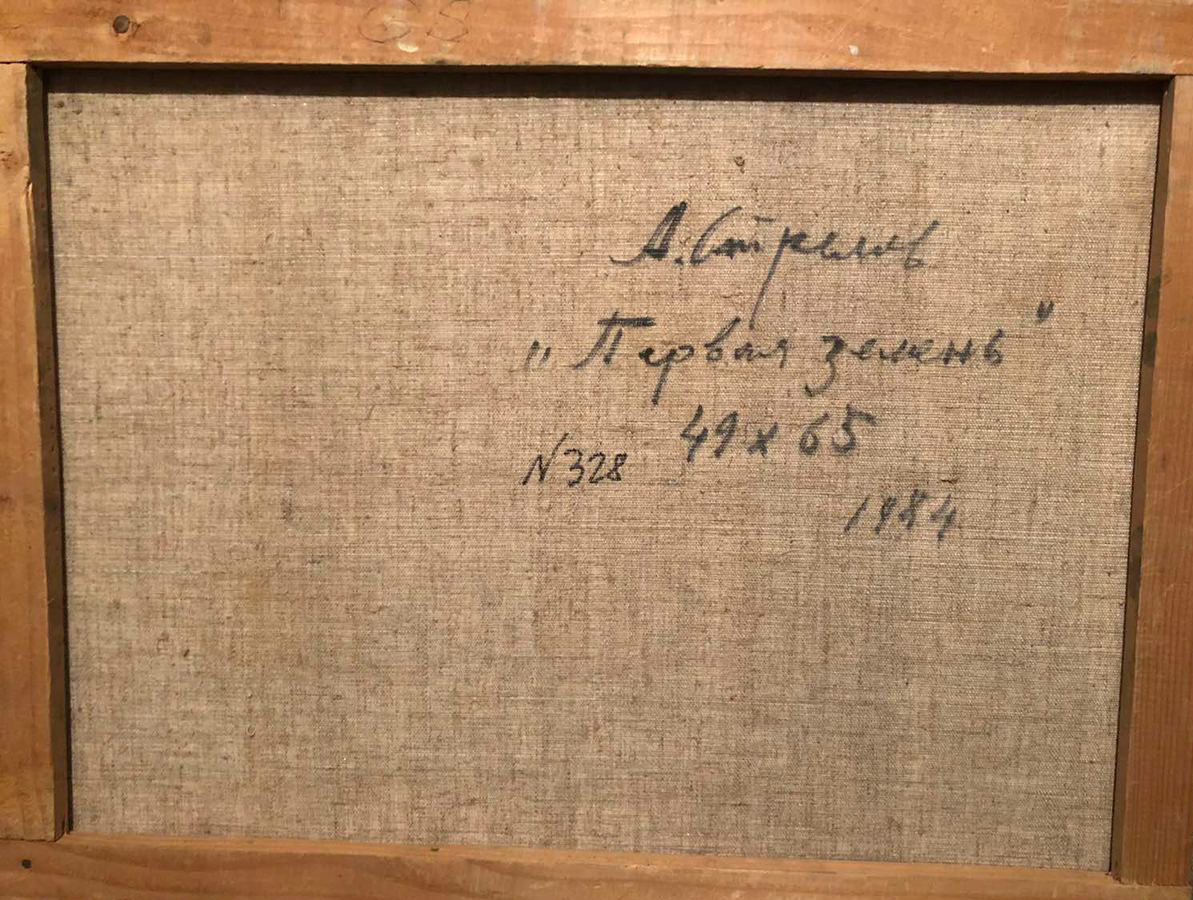 65
А. Стрелов
„Первая зелень"
49 x 65
N 328
1984